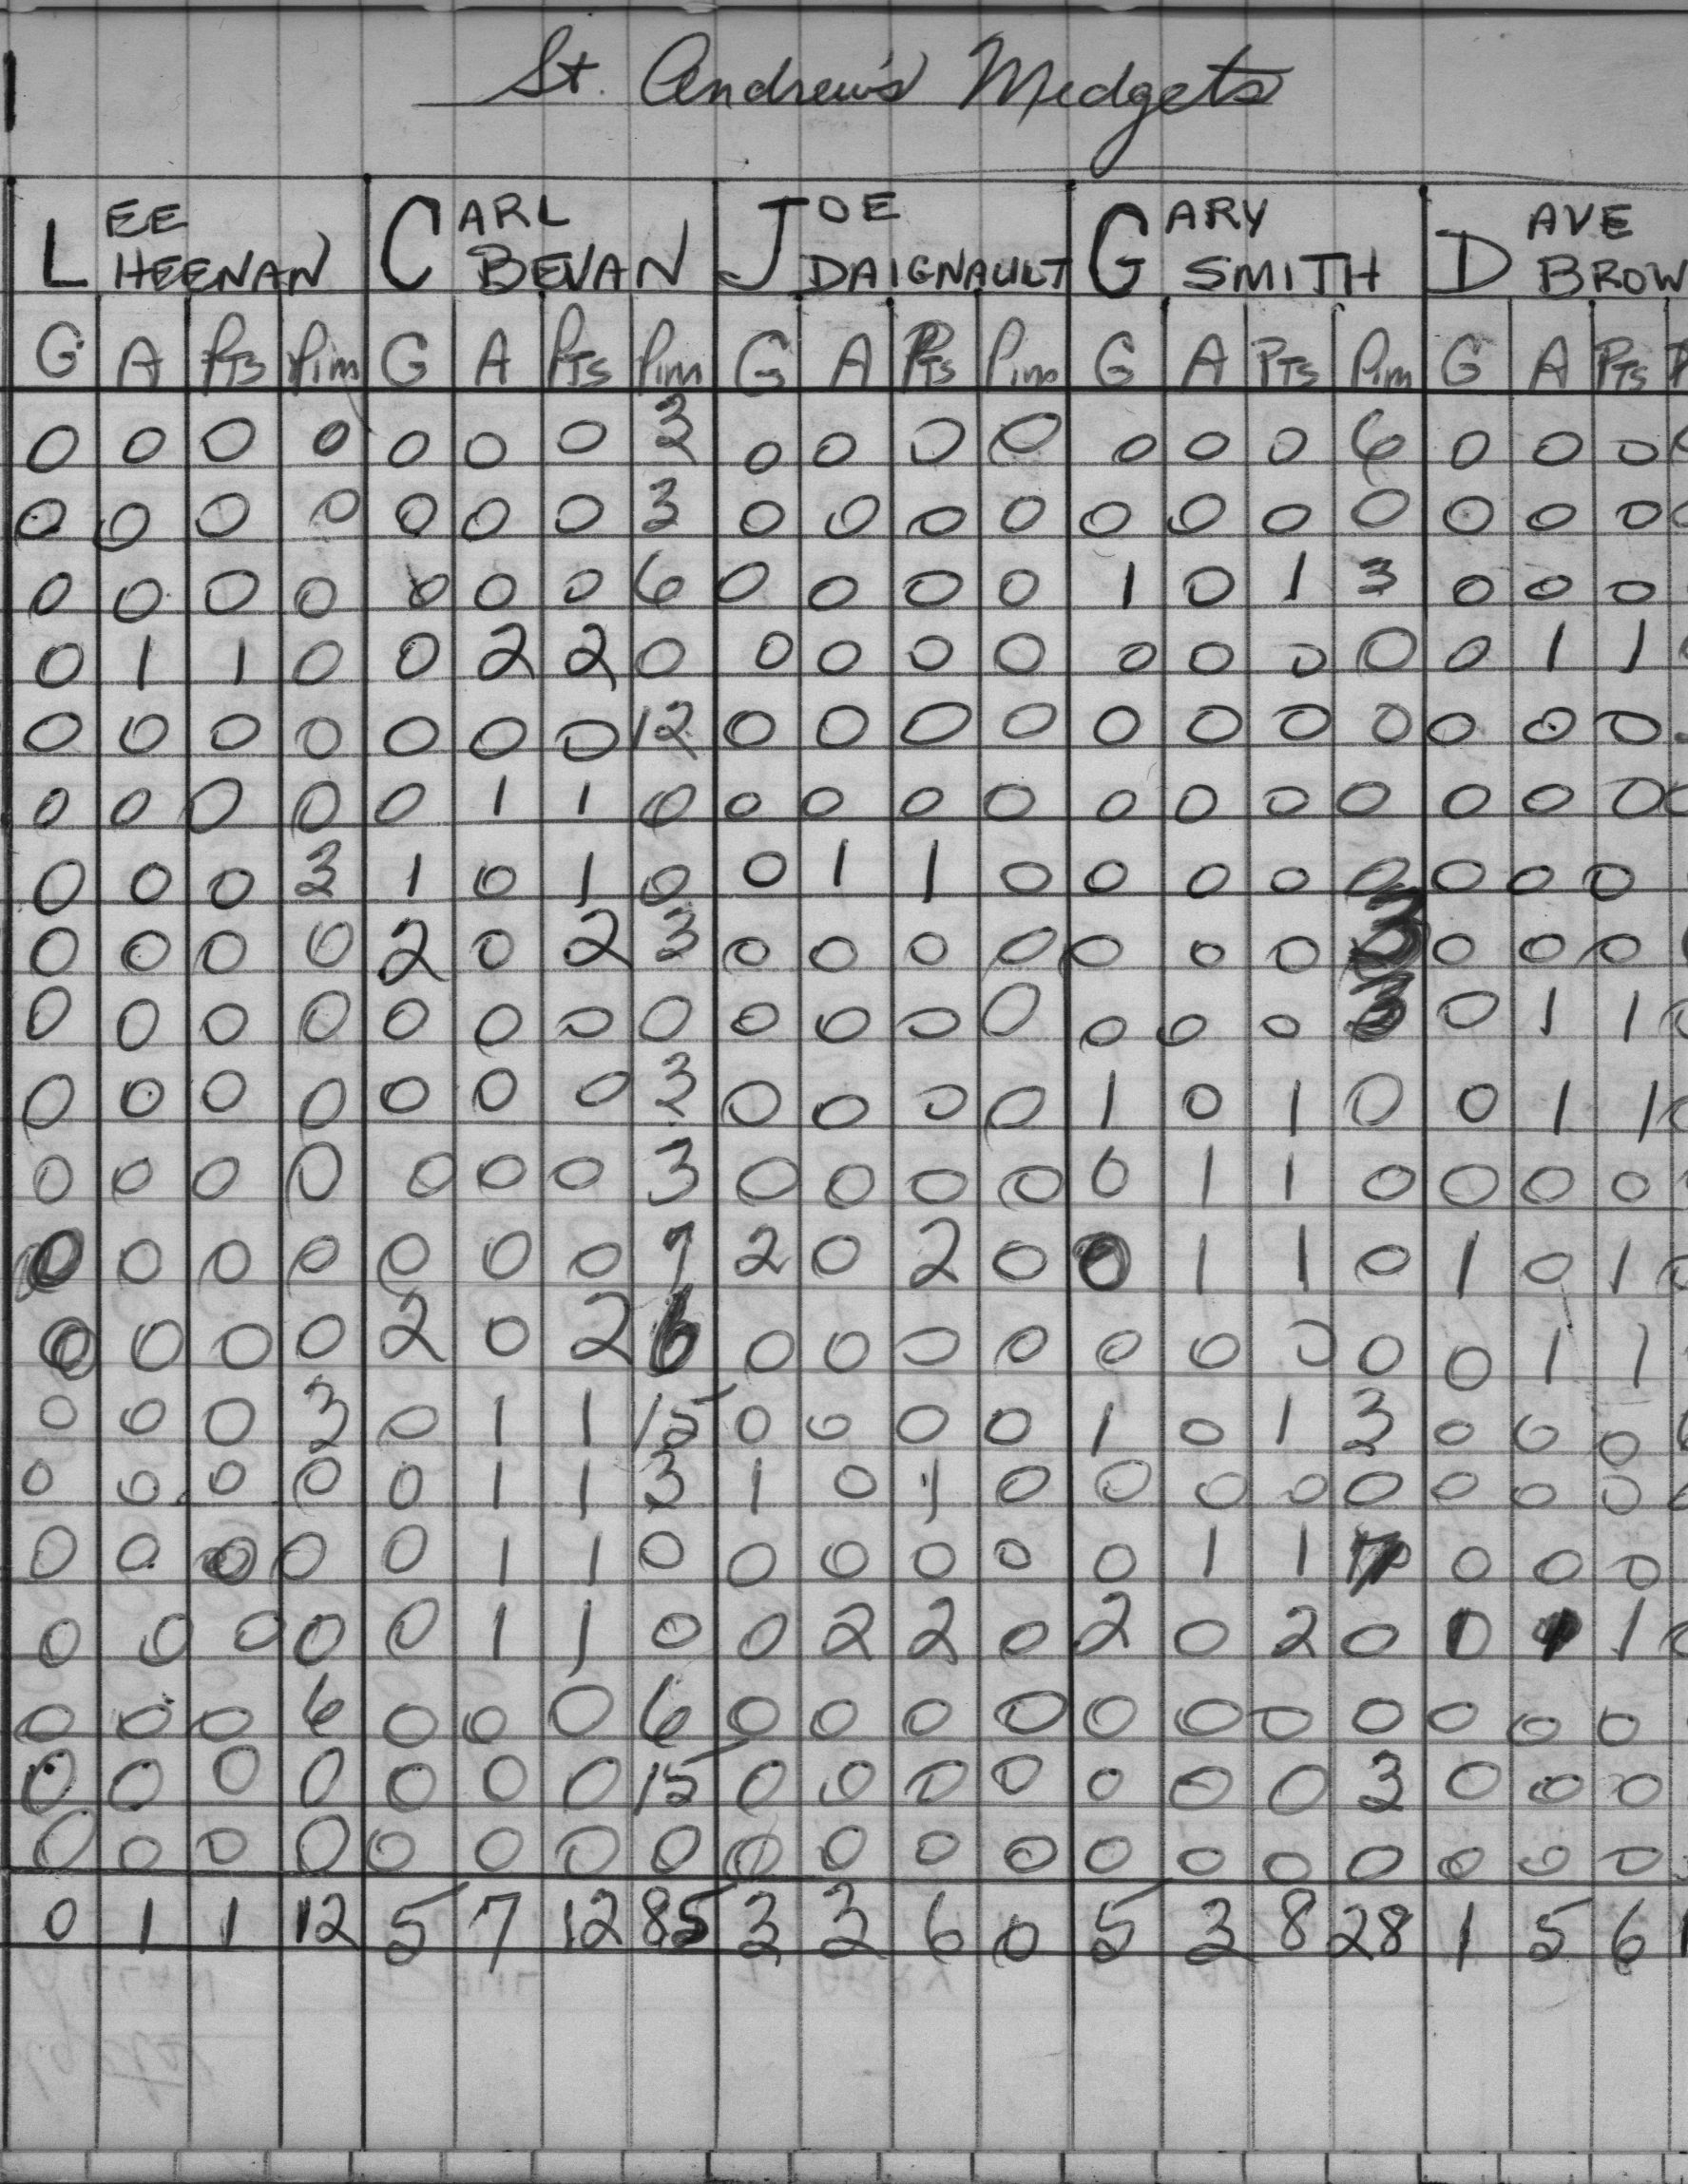 St. Andrew's Midgets
LEE HEENAN CARL BEVAN JOE DAIGNAULT GARY SMITH DAVE BROW
G A Pts Pim G A Pts Pim G A Pts Pim G A Pts Pim G A Pts
0 0 0 0 0 0 0 3 0 0 0 0 0 0 0 6 0 0 0
0 0 0 0 0 0 0 3 0 0 0 0 0 0 0 0 0 0 0
0 0 0 0 0 0 0 6 0 0 0 0 1 0 1 3 0 0 0
0 1 1 0 0 2 2 0 0 0 0 0 0 0 0 0 0 1 1
0 0 0 0 0 0 0 12 0 0 0 0 0 0 0 0 0 0 0
0 0 0 0 0 1 1 0 0 0 0 0 0 0 0 0 0 0 0
0 0 0 3 1 0 1 0 0 1 1 0 0 0 0 0 0 0 0
0 0 0 0 2 0 2 3 0 0 0 0 0 0 0 3 0 0 0
0 0 0 0 0 0 0 0 0 0 0 0 0 0 0 3 0 1 1
0 0 0 0 0 0 0 3 0 0 0 0 1 0 1 0 0 1 1
0 0 0 0 0 0 0 3 0 0 0 0 0 1 1 0 0 0 0
0 0 0 0 0 0 0 7 2 0 2 0 0 1 1 0 1 0 1
0 0 0 0 2 0 2 6 0 0 0 0 0 0 0 0 0 1 1
0 0 0 3 0 1 1 15 0 0 0 0 1 0 1 3 0 0 0
0 0 0 0 0 1 1 3 1 0 1 0 0 0 0 0 0 0 0
0 0 0 0 0 1 1 0 0 0 0 0 0 1 1 0 0 0
0 0 0 0 0 1 1 0 0 2 2 0 2 0 2 0 0 1 1
0 0 0 6 0 0 0 6 0 0 0 0 0 0 0 0 0 0 0
0 0 0 0 0 0 0 15 0 0 0 0 0 0 0 3 0 0 0
0 0 0 0 0 0 0 0 0 0 0 0 0 0 0 0 0 0 0
0 1 1 12 5 7 12 85 3 3 6 0 5 3 8 28 1 5 6